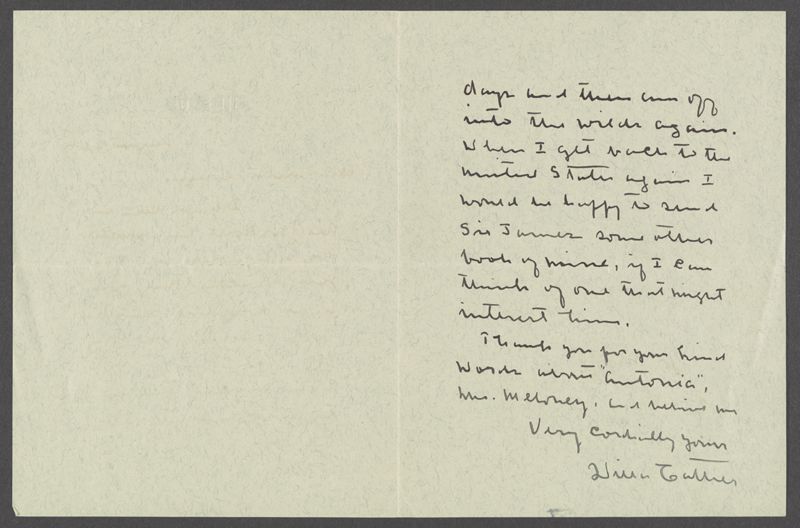 days and then am off
into the wilds again.
When I get back to the
United States again I
would be happy to send
Sir James some other
book of mine, if I can
think of one that might
interest him.
Thank you for your kind
words about "Antonia",
Mrs. Meloney, and believe me
Very cordially yours
Willa Cather